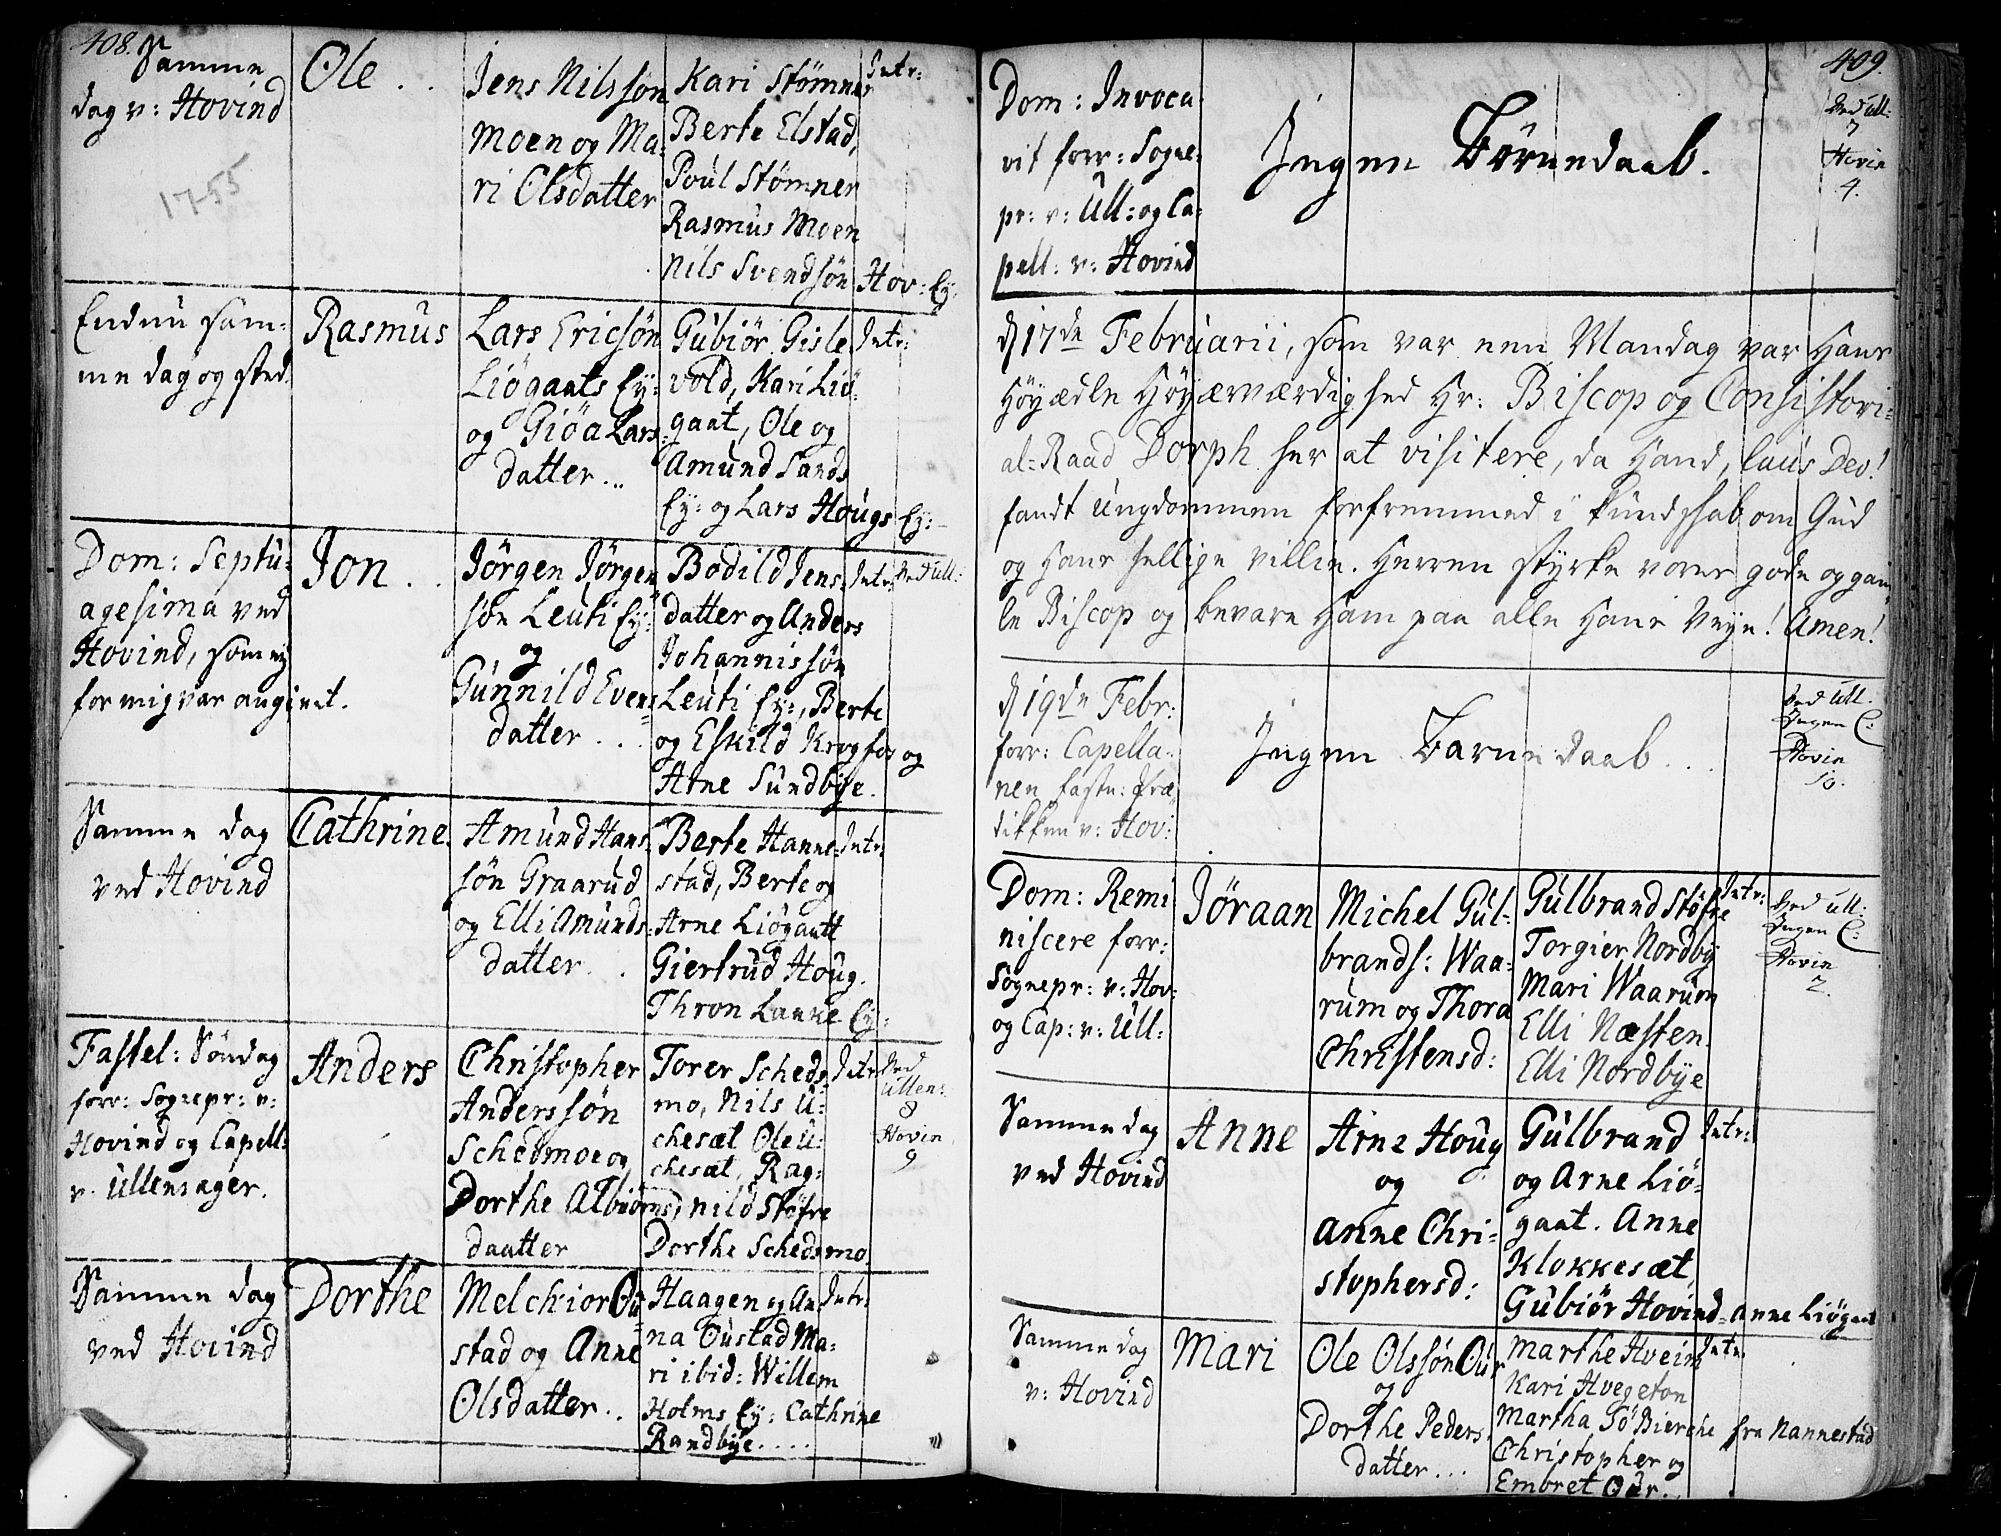 408.
Samme
dag v: Hovind
Ole . .
Jens Nilssøn
Moen og Ma-
ri Olsdatter
Kari Stømner
Berte Elstad,
Poul Stømner
Rasmus Moen
Nils Svendsøn Hov: Ey:
Intr:
1755
Endnu sam-
me dag og sted.
Rasmus
Lars Ericsøn
Liøgaats Ey:
og Giøa Lars-
datter ...
Gubiør Gisle
vold, Kari Liø-
gaat, Ole og
Amund Sands
Ey: og Lars Hougs Ey:
Intr:
Dom: Septu-
agesima ved
Hovind, som ej
for mig var angivet.
Jon . .
Jørgen Jørgen
søn Leuti Ey:
og
Gunnild Evens
datter . . .
Bodild Jens
datter og Anders
Johannissøn
Leuti Ey:, Berte
og Eskild Krogfos og
Arne Sundbye.
Intr:
Ved Ull:
Samme dag
ved Hovind
Cathrine.
Amund Hans-
søn Graarud
og Elli Amunds-
datter . .
Berte Hanne-
stad, Berte og
Arne Liøgaatt
Giertrud Houg.
Thron Lanke Ey:
Intr:
Fastel: Søndag
forr: Sognepr: v:
Hovind og Capell:
v. Ullensager.
Anders
Christopher
Anderssøn
Schedmoe og
Dorthe Albiørns
daatter
Torer Scheds
mo, Nils U-
chesæt Ole U-
chesæt, Rag-
nild Støfre
Dorthe Schedsmo.
Intr:
Ved
Ullen:
8
Hovin
9
Samme dag
ved Hovind
Dorthe
Melchior Ou
stad og Anne
Olsdatter . .
Haagen og An
na Oustad Ma-
ri ibid: Willem
Holms Ey: Cathrine
Randbye . . . .
Intr:
409.
Dom: Invoca
vit forr: Sogne-
pr: v: Ull: og Ca-
pell: v: Hovind
Ingen Børnedaab.
Ved Ull:
7
Hovin
4.
d 17de Februarii, som var nem. Mandag var Hans
Høyædle Høyærværdighed Hr: Biscop og Consistori-
al-Raad Dorph her at visitere, da Hand, laus Deo!
fandt Ungdommen forfremmed i kundskab om Gud
og Hans hellige villie. Herren styrke vores gode og gam
le Biscop og bevare Ham paa alle Hans Veye! Amen!
d 19de Febr:
forr: Capella-
nen faste: Præ
dikken v: Hov:
Ingen Barnedaab . . .
Ved Ull.
Ingen C:
Hovin
10.
Dom: Remi
niscere forr:
Sognepr: v: Hov:
og Cap: v: Ull:
Jøraan
Michel Gul-
brands: Waa-
rum og Thora
Christensd:
Gulbrand Støfre
Torgier Nordby
Mari Waarum
Elli Næsten.
Elli Nordbye
Intr:
Ved Ull:
Ingen C:
Hovin
2.
Samme dag
ved Hovind
Anne
Arne Houg
og
Anne Chri-
stophersd:
Gulbrand
og Arne Liø-
gaat. Anne
Klokkesæt,
Gubiør Hovind. Anne Liøgaat
Intr:
Samme dag
v: Hovind
Mari
Ole Olssøn Our
og
Dorthe Peders
datter . . .
Marthe Hveim
Kari Hvegeton
Martha Sø Bierche fra Nannestad
Christopher og
Embret Our.
Intr.